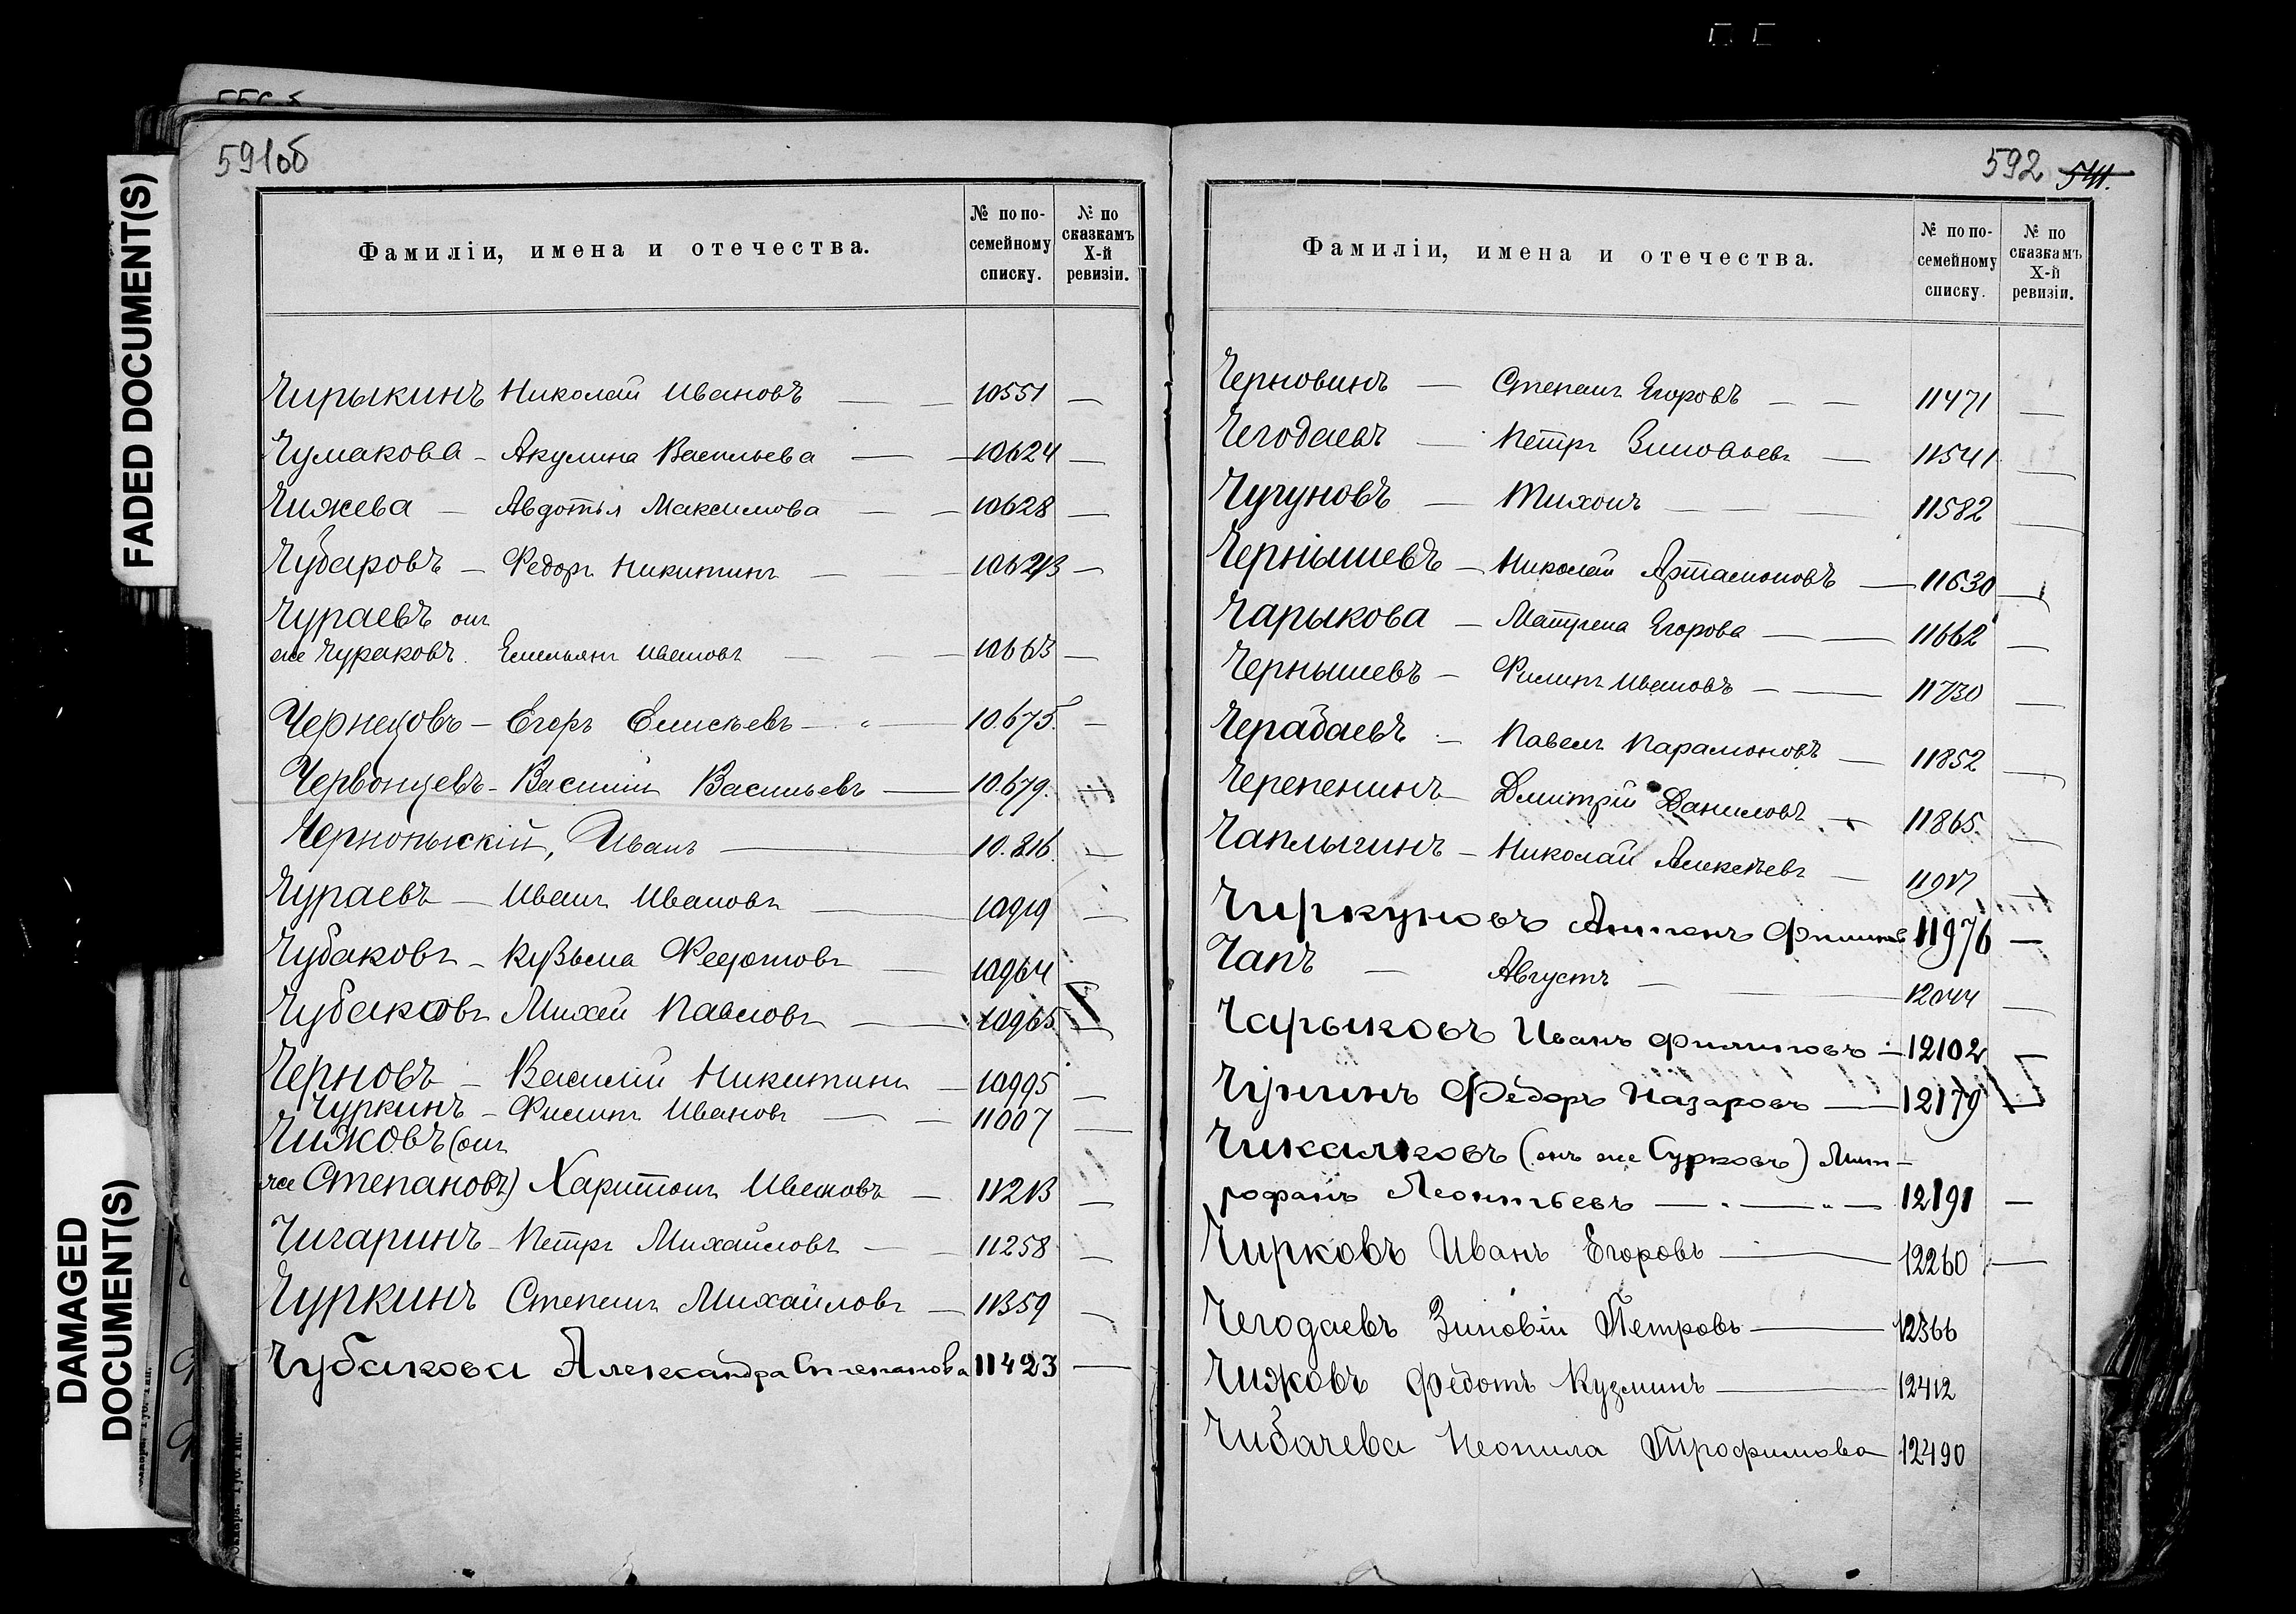 591об
Фамиліи, имена и отечества.
№ по по-
семейному
списку.
№ по
сказкамъ
X-й
ревизіи.
Чирыкинъ Николай Ивановъ — — 10551 —
Чумакова — Акулина Васильева — — 10624 —
Чижева — Авдотья Максимова — — 10628 —
Чубаровъ — Федоръ Никитинъ — —
Чураевъ онъ
же Чураковъ. Емельянъ Ивановъ — — — 10663 —
Чернецовъ — Егоръ Елисѣевъ — " — 10.675. —
Червонцевъ — Василій Васильевъ — 10.679. —
Иванъ — 10.816. —
Чураевъ — Иванъ Ивановъ — 10919 —
Чубаковъ — Кузьма Федотовъ — 10964
Чубаковъ Павловъ — 10965 —
Черновъ — Василій Никитинъ — 10995 —
Чуркинъ — Филипъ Ивановъ — — 11007 —
Чижовъ (онъ
же Степановъ) Харитонъ Ивановъ — 11213 —
Чигаринъ — Петръ Михайловъ — — 11258 —
Чуркинъ Степанъ Михайловъ — 11359 —
Чубакова Александра Степанова 11423 —
592 541.
Фамиліи, имена и отечества.
№ по по-
семейному
списку.
№ по
сказкамъ
X-й
ревизіи.
Черновинъ — Степанъ Егоровъ — — 11471 —
Чегодаевъ — Петръ Зиновьевъ — 11541 —
Чугуновъ — Тихонъ — — — 11582 —
Чернышевъ — Николай Артамоновъ — 11630 —
Чарыкова — Матрена Егорова — — 11662 —
Чернышевъ — Филипъ Ивановъ — — 11730 —
Черабаевъ — Павелъ Парамоновъ — 11852 —
Черепенинъ — Дмитрій Даниловъ — 11865. —
Чаплыгинъ — Николай Алексѣевъ —
Чиркуновъ Антонъ 11976 —
Чапъ — Августъ — — 12044 —
Чарыковъ Иванъ Филиповъ — 12102 —
Чунинъ Федоръ Назаровъ — 12179 —
Чикалковъ (онъ же Сурковъ) Мит-
рофанъ Леонтьевъ — " — " — 12191 —
Чирковъ Иванъ Егоровъ — 12260 —
Чегодаевъ Зиновій Петровъ — 12366
Чижовъ Федотъ Кузминъ — 12412
Чибачева Неонила Трофимова 12490
FADED DOCUMENT(S)
DAMAGED
DOCUMENT(S)